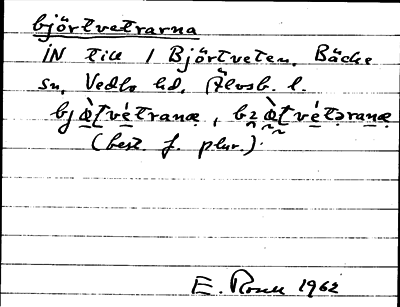 björtvetrarna
IN till 1 Björtveten, Bäcke
sn, Vedbo hd, Älvsb. l.
bjæ̀tvétranæ, bzæ̀tvétəranæ
(best. f. plur.).
E. Rosell 1962